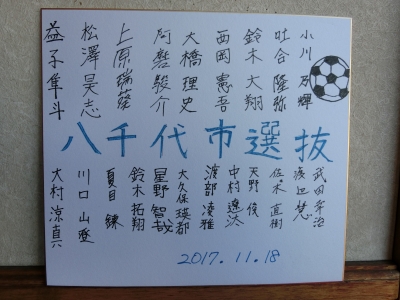 小川 夙輝
吐合 隆弥
鈴木 大翔
西岡 憲吾
大橋 理史
阿磨 駿介
上原 瑞薩
松澤 昊志
益子 隼斗
八千代市選抜
武田 幸治
渡辺 慧
佐々木 直樹
天野 俊
中村 遼汰
渡部 凌雅
大久保 瑛都
星野 智哉
鈴木 拓翔
夏目 錬
川口 山登
大村 涼真
2017.11.18